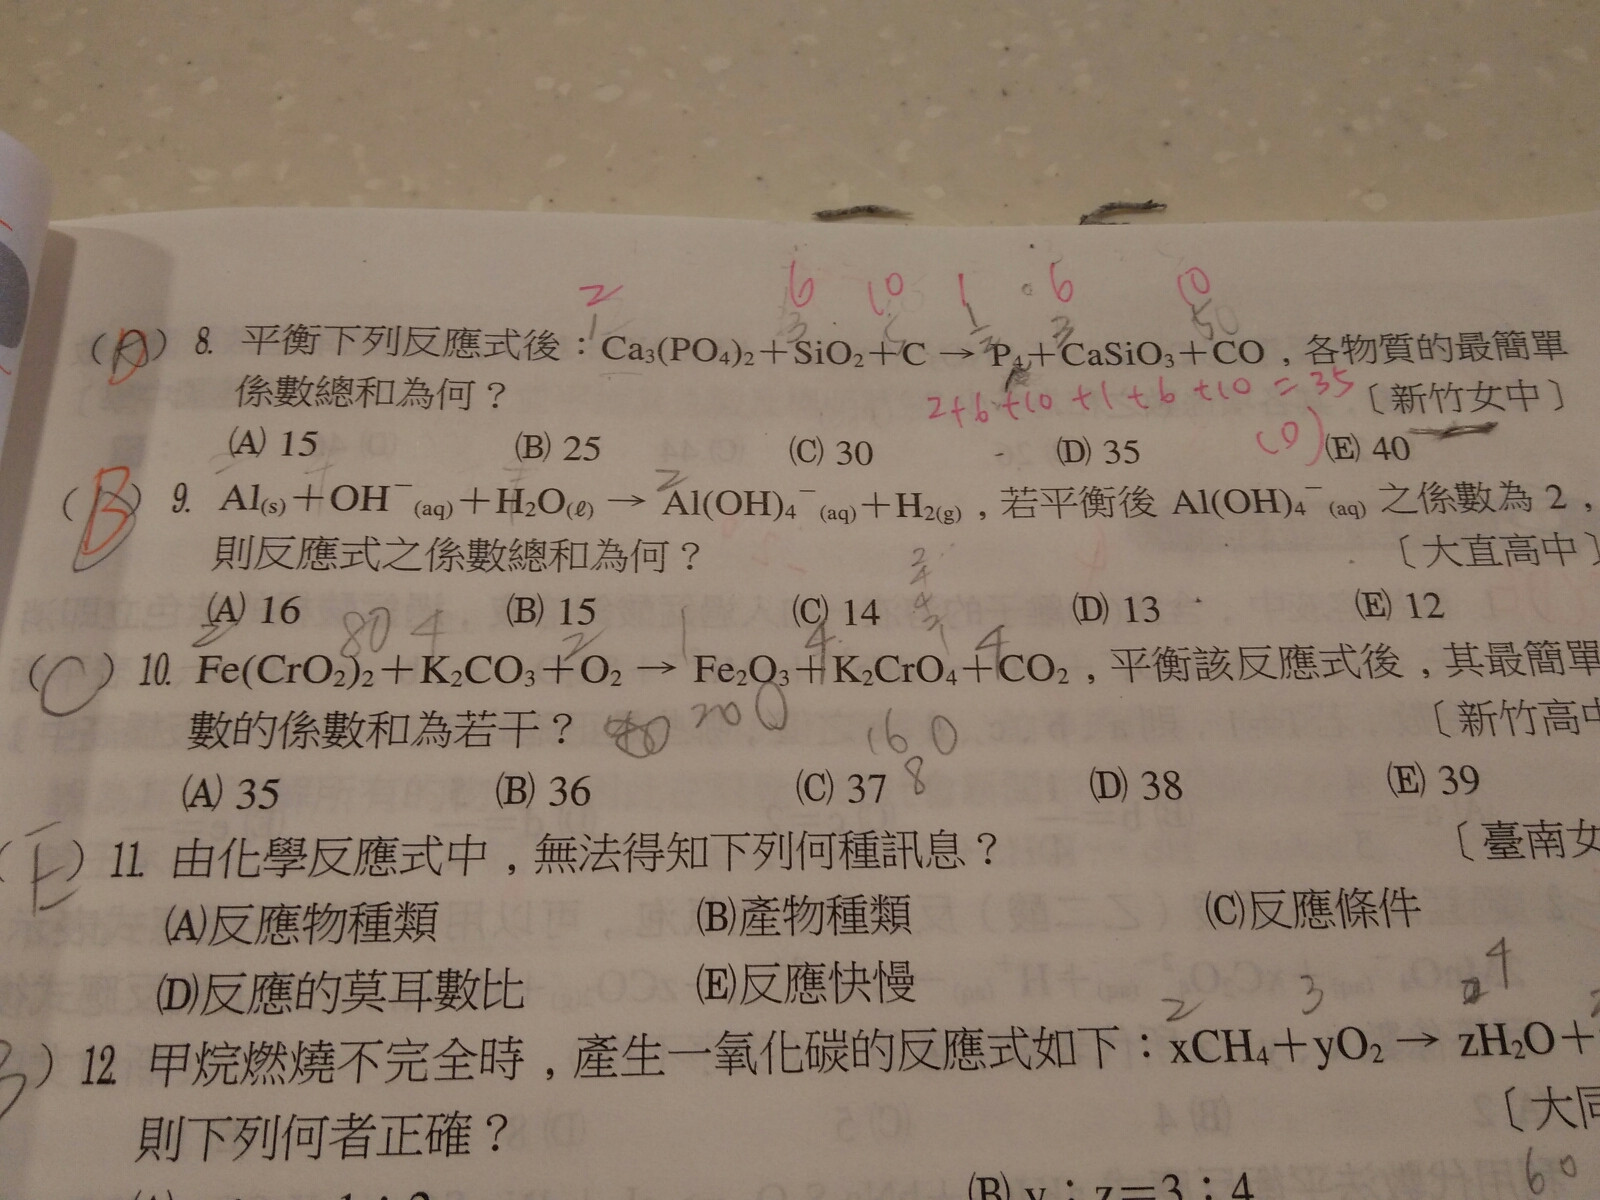 2 6 10 1 6 10
1 3 1 3
(D) 8. 平衡下列反應式後：Ca₃(PO₄)₂+SiO₂+C → P₄+CaSiO₃+CO，各物質的最簡單
係數總和為何？ 2+6+10+1+6+10=35 〔新竹女中〕
(A) 15 (B) 25 (C) 30 (D) 35 (D) (E) 40
(B) 9. Al(s)+OH⁻(aq)+H₂O(ℓ) → Al(OH)₄⁻(aq)+H₂(g)，若平衡後 Al(OH)₄⁻(aq) 之係數為 2，
則反應式之係數總和為何？ 〔大直高中〕
(A) 16 (B) 15 (C) 14 (D) 13 (E) 12
2 80 4 2 1 4 4
(C) 10. Fe(CrO₂)₂+K₂CO₃+O₂ → Fe₂O₃+K₂CrO₄+CO₂，平衡該反應式後，其最簡單
數的係數和為若干？ 〔新竹高中
160
(A) 35 (B) 36 (C) 37 8 (D) 38 (E) 39
(E) 11. 由化學反應式中，無法得知下列何種訊息？ 〔臺南女
(A)反應物種類 (B)產物種類 (C)反應條件
(D)反應的莫耳數比 (E)反應快慢
2 3 4
) 12. 甲烷燃燒不完全時，產生一氧化碳的反應式如下：xCH₄+yO₂ → zH₂O+
則下列何者正確？ 〔大同
60
(B) y：z=3：4